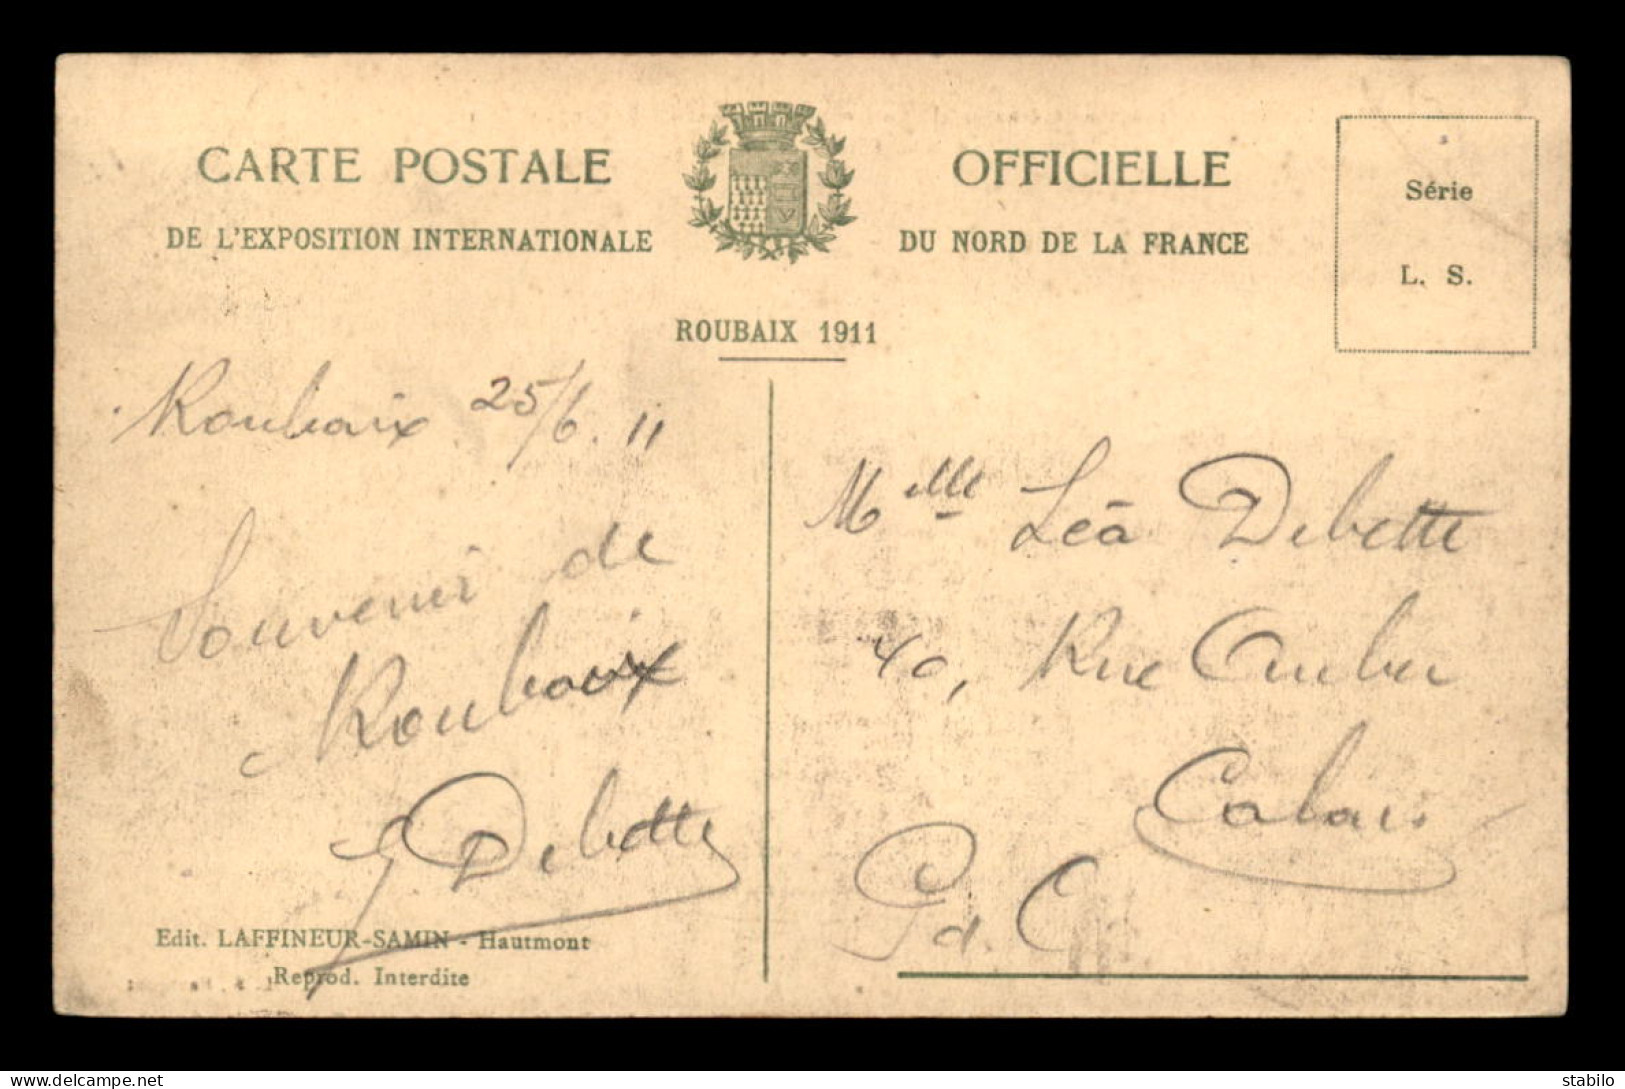 CARTE POSTALE OFFICIELLE
DE L'EXPOSITION INTERNATIONALE DU NORD DE LA FRANCE
ROUBAIX 1911
Série
L. S.
Roubaix 25/6. 11
Souvenir de
Roubaix
Debette
Edit. LAFFINEUR-SAMIN - Hautmont
Reprod. Interdite
Melle Léa Debette
40, Rue
Calais
P d. C
delcampe.net
stabilo